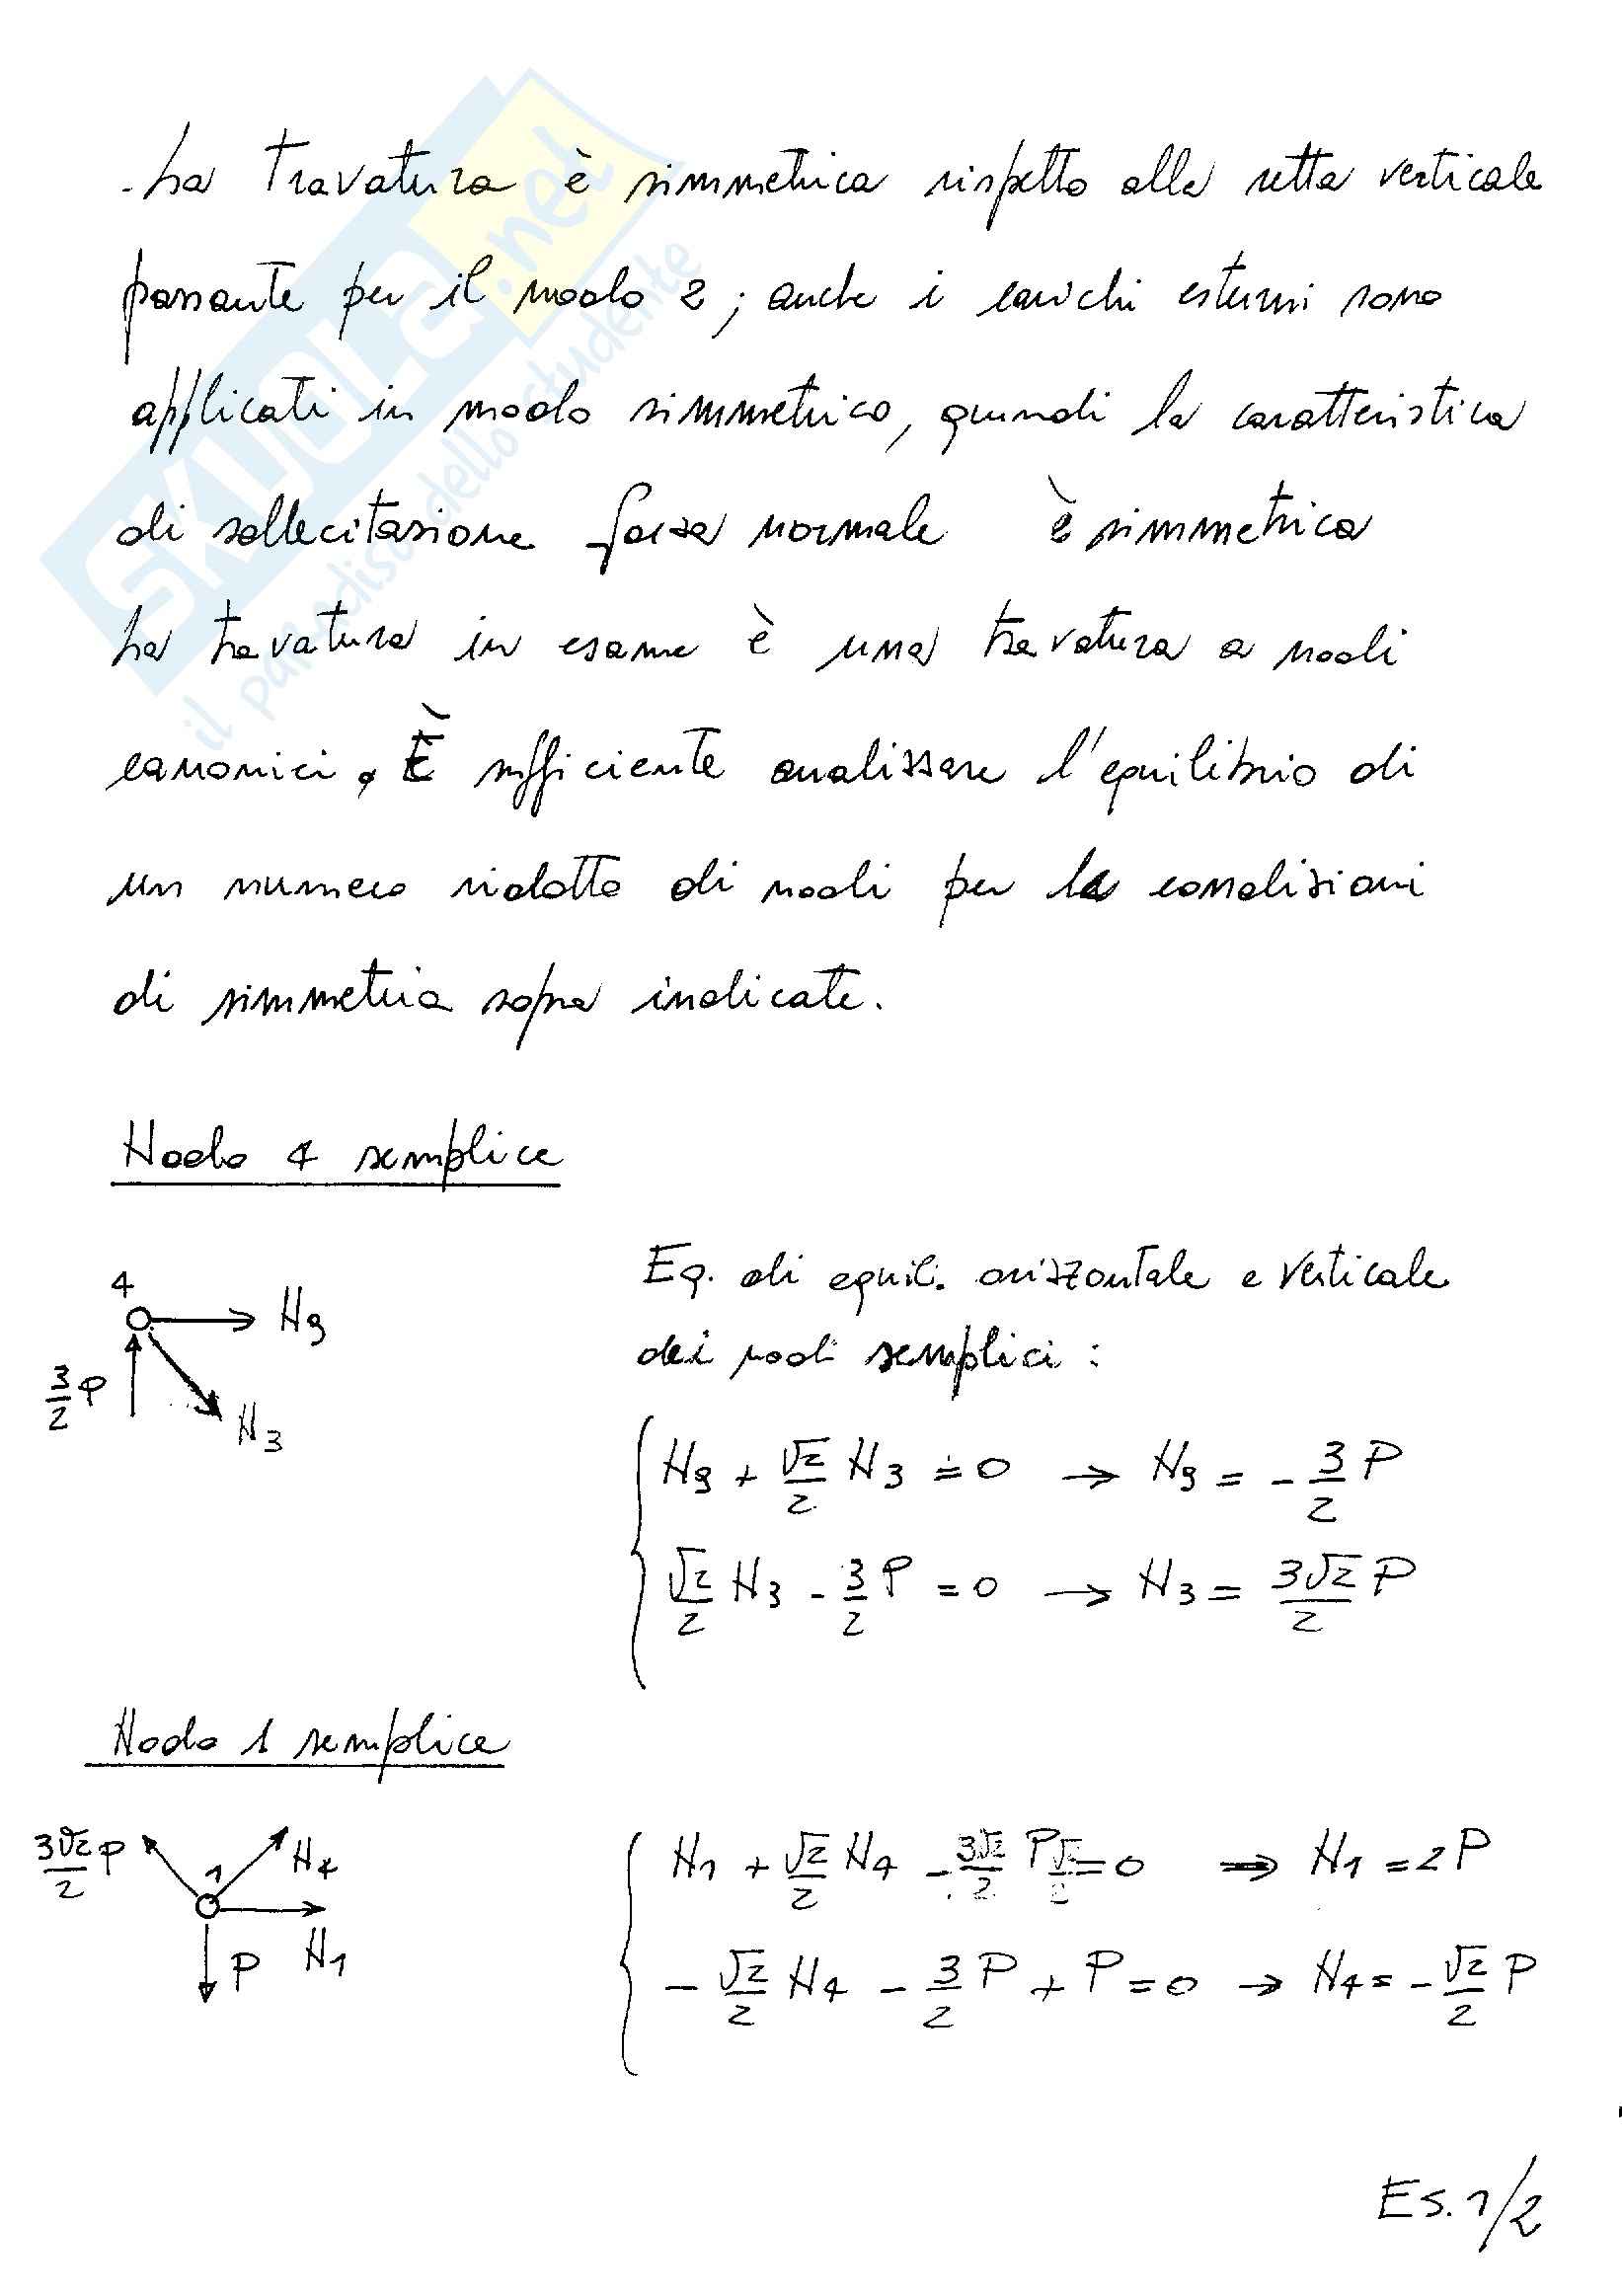 - La Travatura è simmetrica rispetto alla retta verticale
passante per il nodo 2; anche i carichi esterni sono
applicati in modo simmetrico, quindi la caratteristica
di sollecitazione forza normale è simmetrica
La travatura in esame è una travatura a nodi
canonici. È sufficiente analizzare l'equilibrio di
un numero ridotto di nodi per le condizioni
di simmetria sopra indicate.
Nodo 4 semplice
4
N9
3/2 P
N3
Eq. di equil. orizzontale e verticale
dei nodi semplici :
N9 + √2/2 N3 = 0 → N9 = - 3/2 P
√2/2 N3 - 3/2 P = 0 → N3 = 3√2/2 P
Nodo 1 semplice
3√2/2 P
1
N4
P
N1
N1 + √2/2 N4 - 3√2/2 P √2/2 = 0 ⇒ N1 = 2P
- √2/2 N4 - 3/2 P + P = 0 → N4 = - √2/2 P
Es. 1/2
SKUOLA.net
il paradiso dello studente